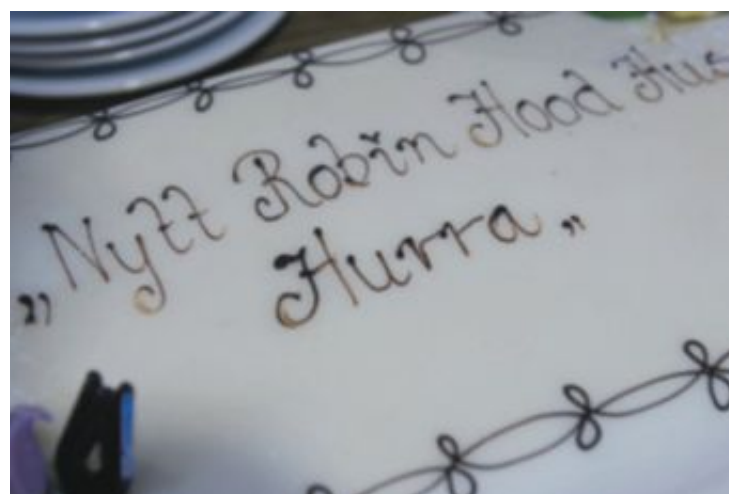 „Nytt Robin Hood Hus
Hurra„